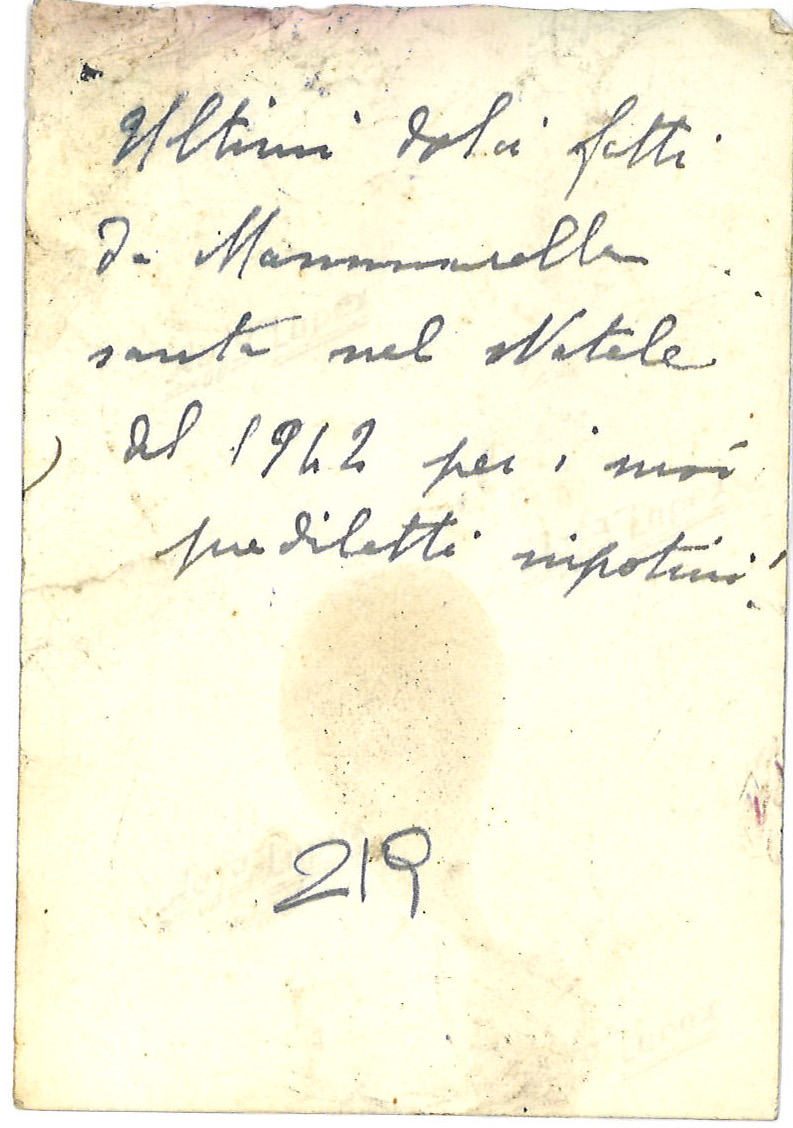 Ultimi dolci fatti
da Mammarella
santa nel Natale
del 1942 per i suoi
prediletti nipotini!
219